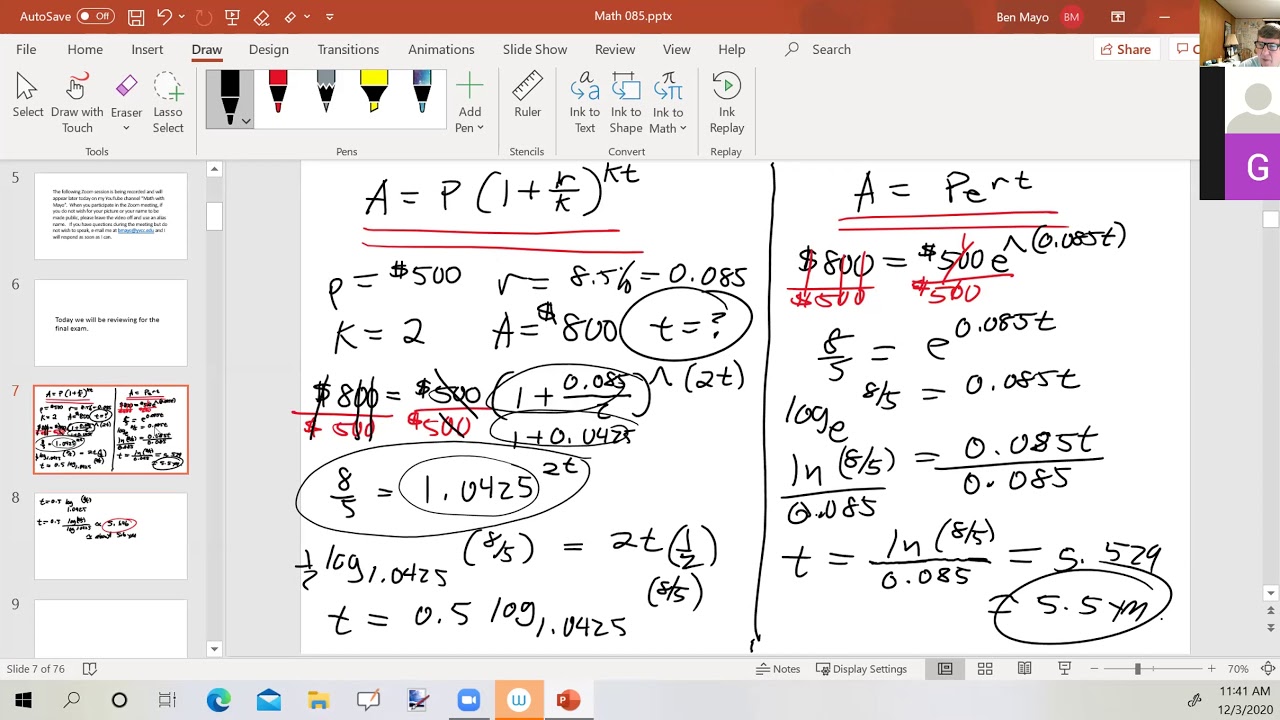 AutoSave Off
Math 085.pptx
Ben Mayo BM
File Home Insert Draw Design Transitions Animations Slide Show Review View Help Search
Share
Select
Draw with Touch
Eraser
Lasso Select
Add Pen
Ruler
Ink to Text
Ink to Shape
Ink to Math
Ink Replay
Tools
Pens
Stencils
Convert
Replay
G
5
The following Zoom session is being recorded and will
appear later today on my YouTube channel "Math with
Mayo". When you participate in the Zoom meeting, if
you do not wish for your picture or your name to be
made public, please leave the video off and use an alias
name. If you have questions during the meeting but do
not wish to speak, e-mail me at
and I
will respond as soon as I can.
6
Today we will be reviewing for the
final exam.
7
8
9
A = P(1 + r/k)^kt
P = $500 r = 8.5% = 0.085
K = 2 A = $800 t = ?
$800 = $500 (1 + 0.085/2) ^ (2t)
$500 $500 1 + 0.0425
8/5 = 1.0425^2t
1/2 log 1.0425 (8/5) = 2t (1/2)
t = 0.5 log 1.0425 (8/5)
A = Pe^rt
$800 = $500 e ^(0.085t)
$500 $500
8/5 = e^0.085t
log e 8/5 = 0.085t
ln (8/5) = 0.085t
0.085 0.085
t = ln (8/5)/0.085 = 5.529
= 5.5 yr.
Slide 7 of 76
Notes
Display Settings
70%
11:41 AM
12/3/2020